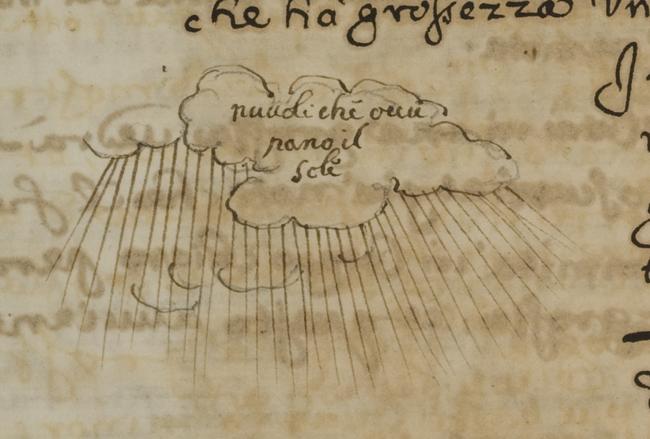 che ha grossezza Vn
nuuoli chē ocuu
pano il
solē